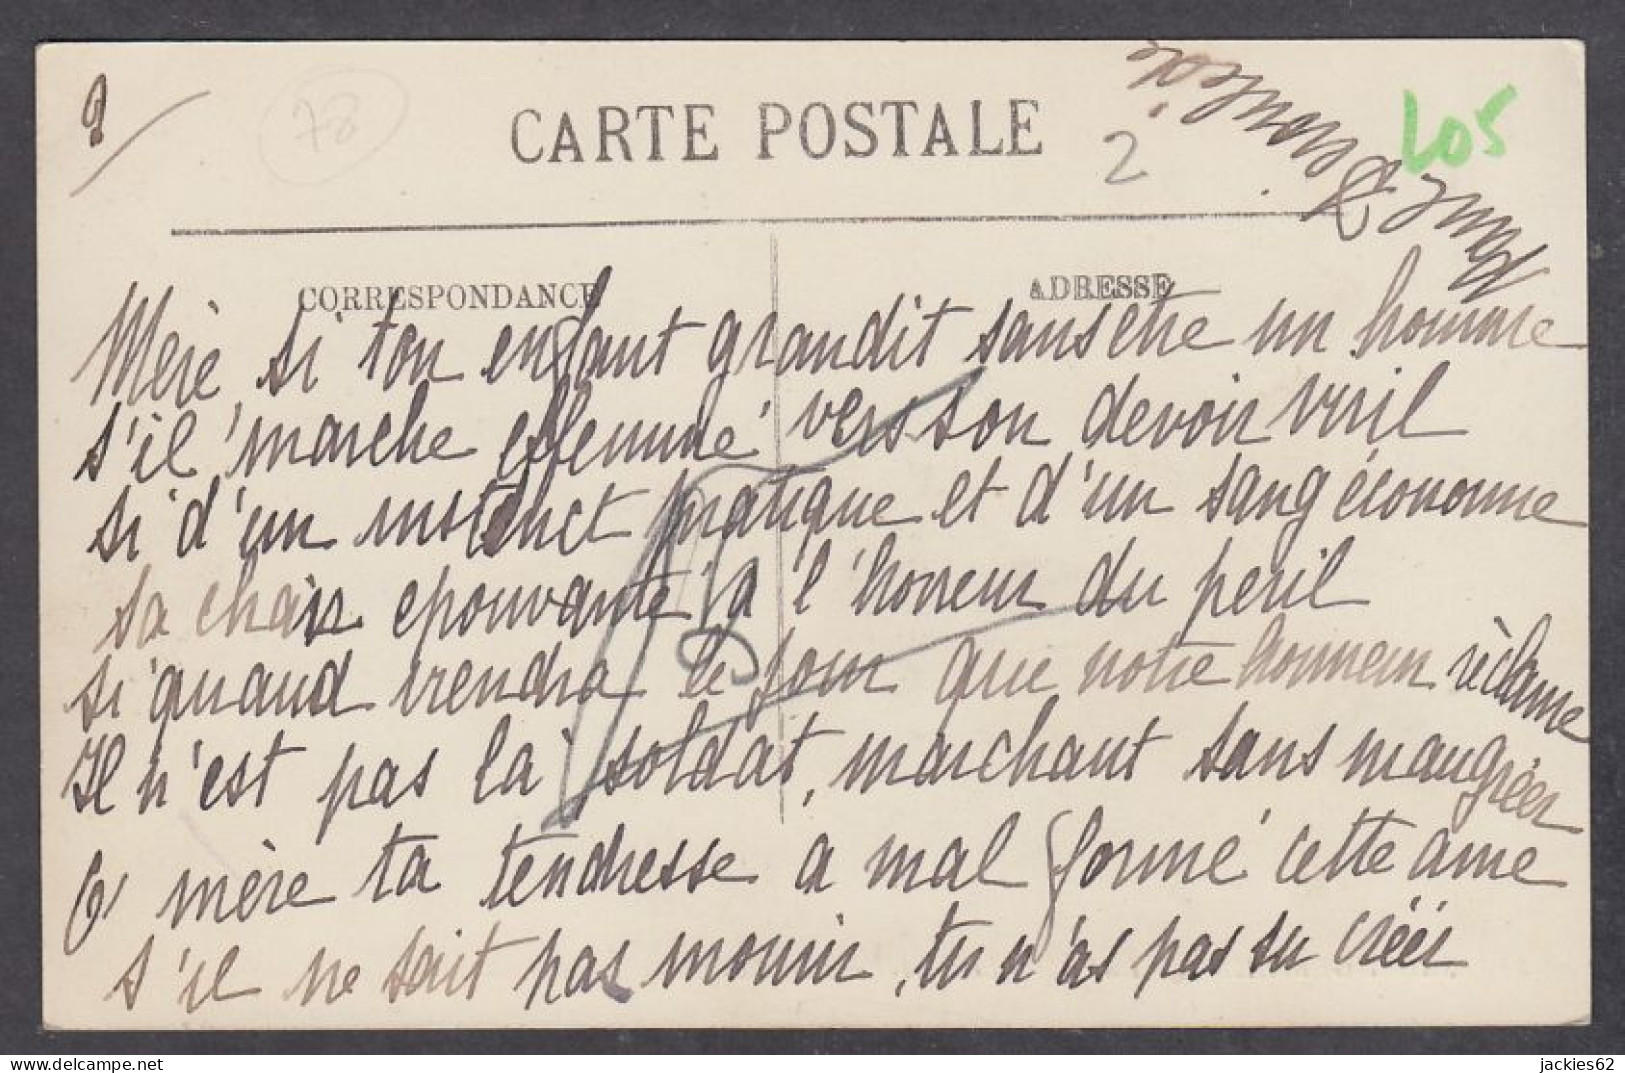 78
CARTE POSTALE
2
LOS
CORRESPONDANCE
ADRESSE
Mère, si ton enfant grandit sans etre un homme
s'il marche effeminé vers son devoir viril
si d'un instinct pratique et d'un sang économe
sa chair epouvante à l'horreur du peril
si quand viendra le jour que notre honneur réclame
Il n'est pas là soldat, marchant sans maugréer
O mère ta tendresse a mal formé cette ame
s'il ne sait pas mourir, tu n'as pas su créer
jackies62